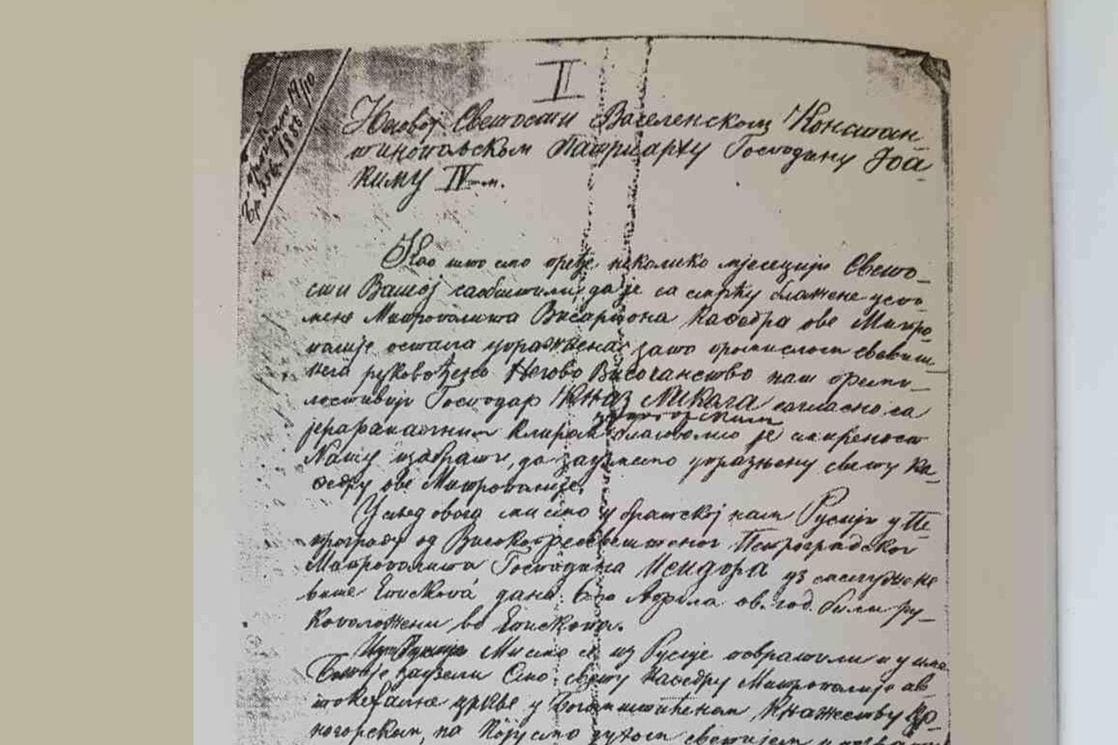 II
Његовој Светости Васеленском Констан
тинопольском Патријарху Господину Јоа-
киму IV-м.
Као што смо пређе неколико мјесеција Свето-
сти Вашој саобштили, да је са смрћу блажене успо
мене Митрополита Висариона Каѳедра ове Митро
полије остала упражњена; зато промислом свевиш-
њега руковођено Његово Височанство наш преми-
лостивији Господар Књаз Никола сагласно са
јерархическим клиром благоволио је смиреност
Нашу изабрати, да заузмемо упразњену свету ка-
ѳедру ове Митрополије.
Усљед овога ми смо у братској нам Русији у Пе
трограду од Високопреосвештеног Петроградског
Митрополита Господина Исидора уз саслужење
више Епископа дана 6го Априла ов. год. били ру-
коположени во Епископа.
Ми смо се из Русије повратили и у име
Божје заузели Смо свету каѳедру Митрополије ав-
токефалне цркве у Богомштићеном Књажеству Цр-
ногорском, на којусмо духом светијем и